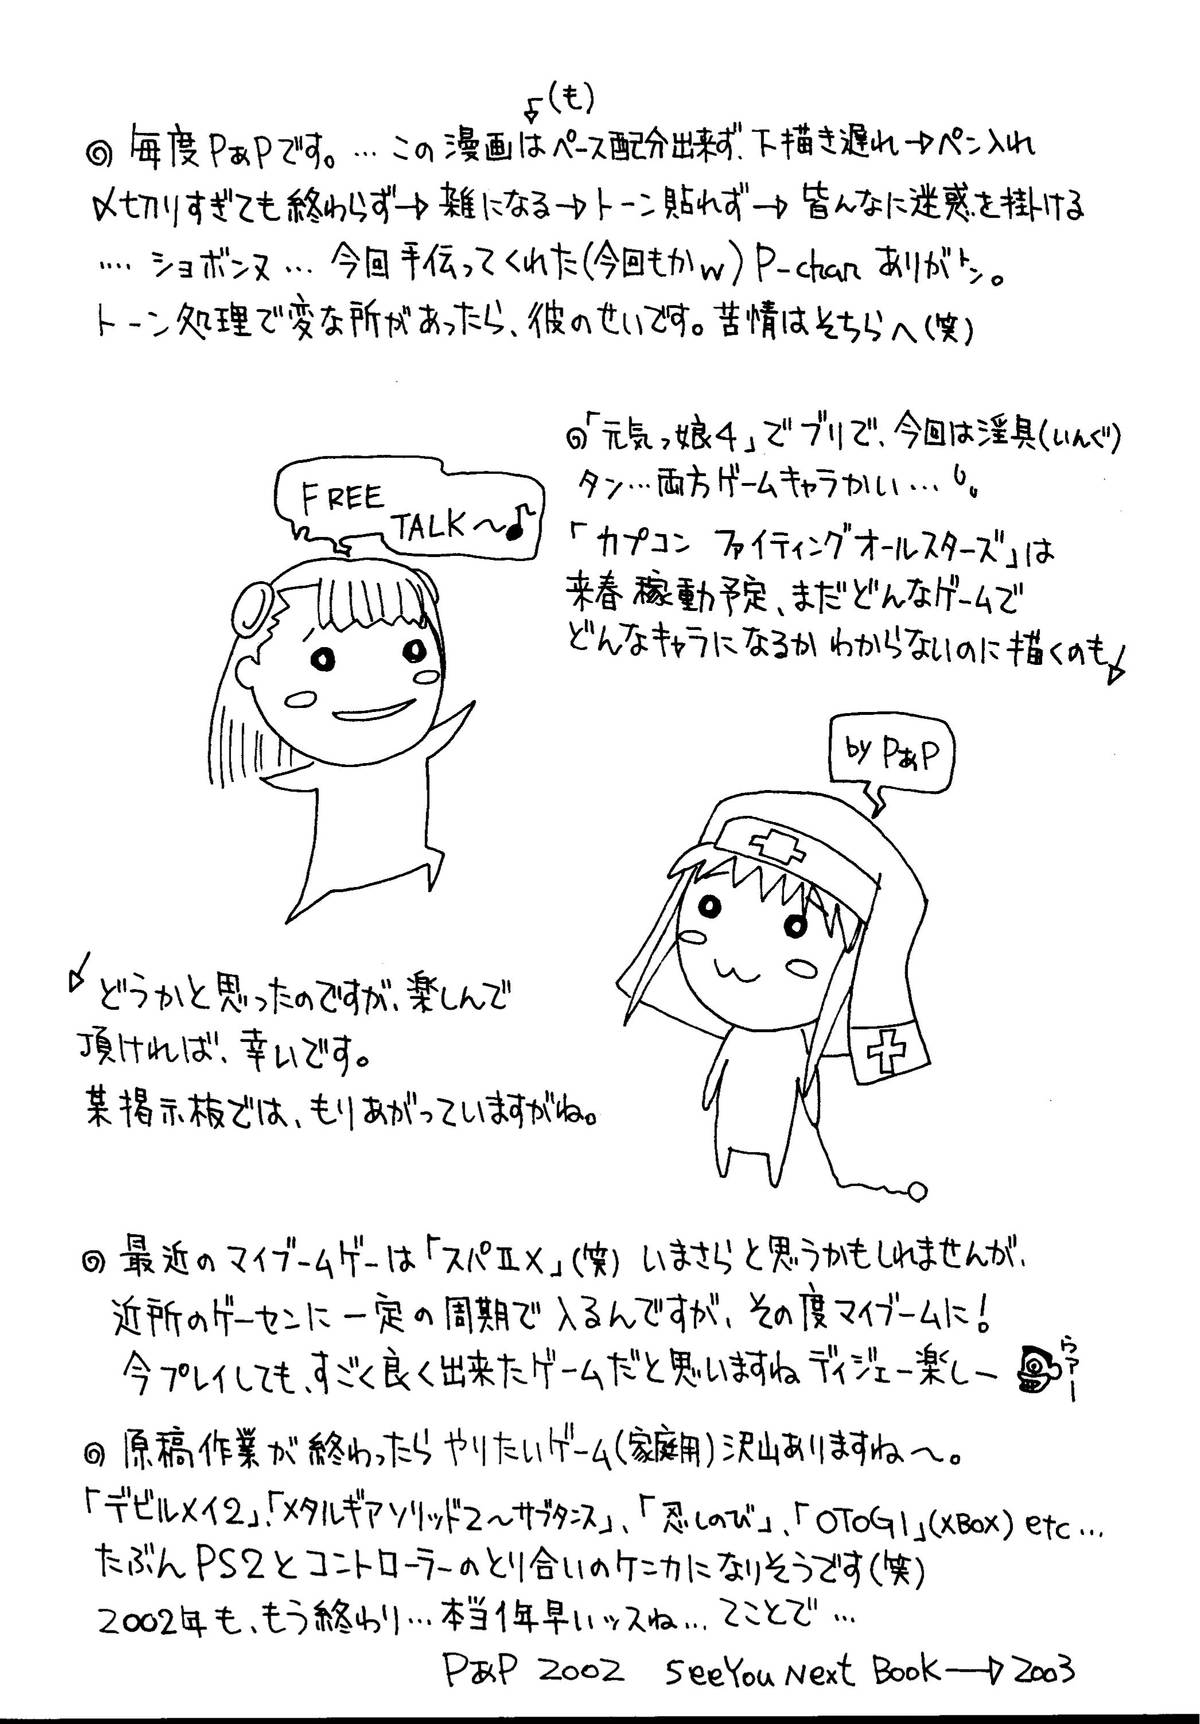 (も)
◎毎度PあPです。…この漫画はペース配分出来ず、下描き遅れ→ペン入れ
〆切りすぎても終わらず→雑になる→トーン貼れず→皆んなに迷惑を掛ける
‥‥ショボンヌ…今回手伝ってくれた(今回もかw)P-chanありがトン。
トーン処理で変な所があったら、彼のせいです。苦情はそちらへ(笑)
◎「元気っ娘4」でブリで、今回は淫具(いんぐ)
タン…両方ゲームキャラかい…
「カプコン ファイティングオールスターズ」は
来春稼動予定、まだどんなゲームで
どんなキャラになるかわからないのに描くのも
FREE
TALK〜♪
by PあP
どうかと思ったのですが、楽しんで
頂ければ、幸いです。
某掲示板では、もりあがっていますがね。
◎最近のマイブームゲーは「スパⅡX」(笑)いまさらと思うかもしれませんが、
近所のゲーセンに一定の周期で入るんですが、その度マイブームに!
今プレイしても、すごく良く出来たゲームだと思いますねディジェー楽しー
ウァー
◎原稿作業が終わったらやりたいゲーム(家庭用)沢山ありますね〜。
「デビルメイ2」、「メタルギアソリッド2〜サブタンス」、「忍しのび」、「OTOGI」(XBOX)etc…
たぶんPS2とコントローラーのとり合いのケンカになりそうです(笑)
2002年も、もう終わり…本当1年早いッスね…てことで…
PあP 2002 See You Next BOOK→2003